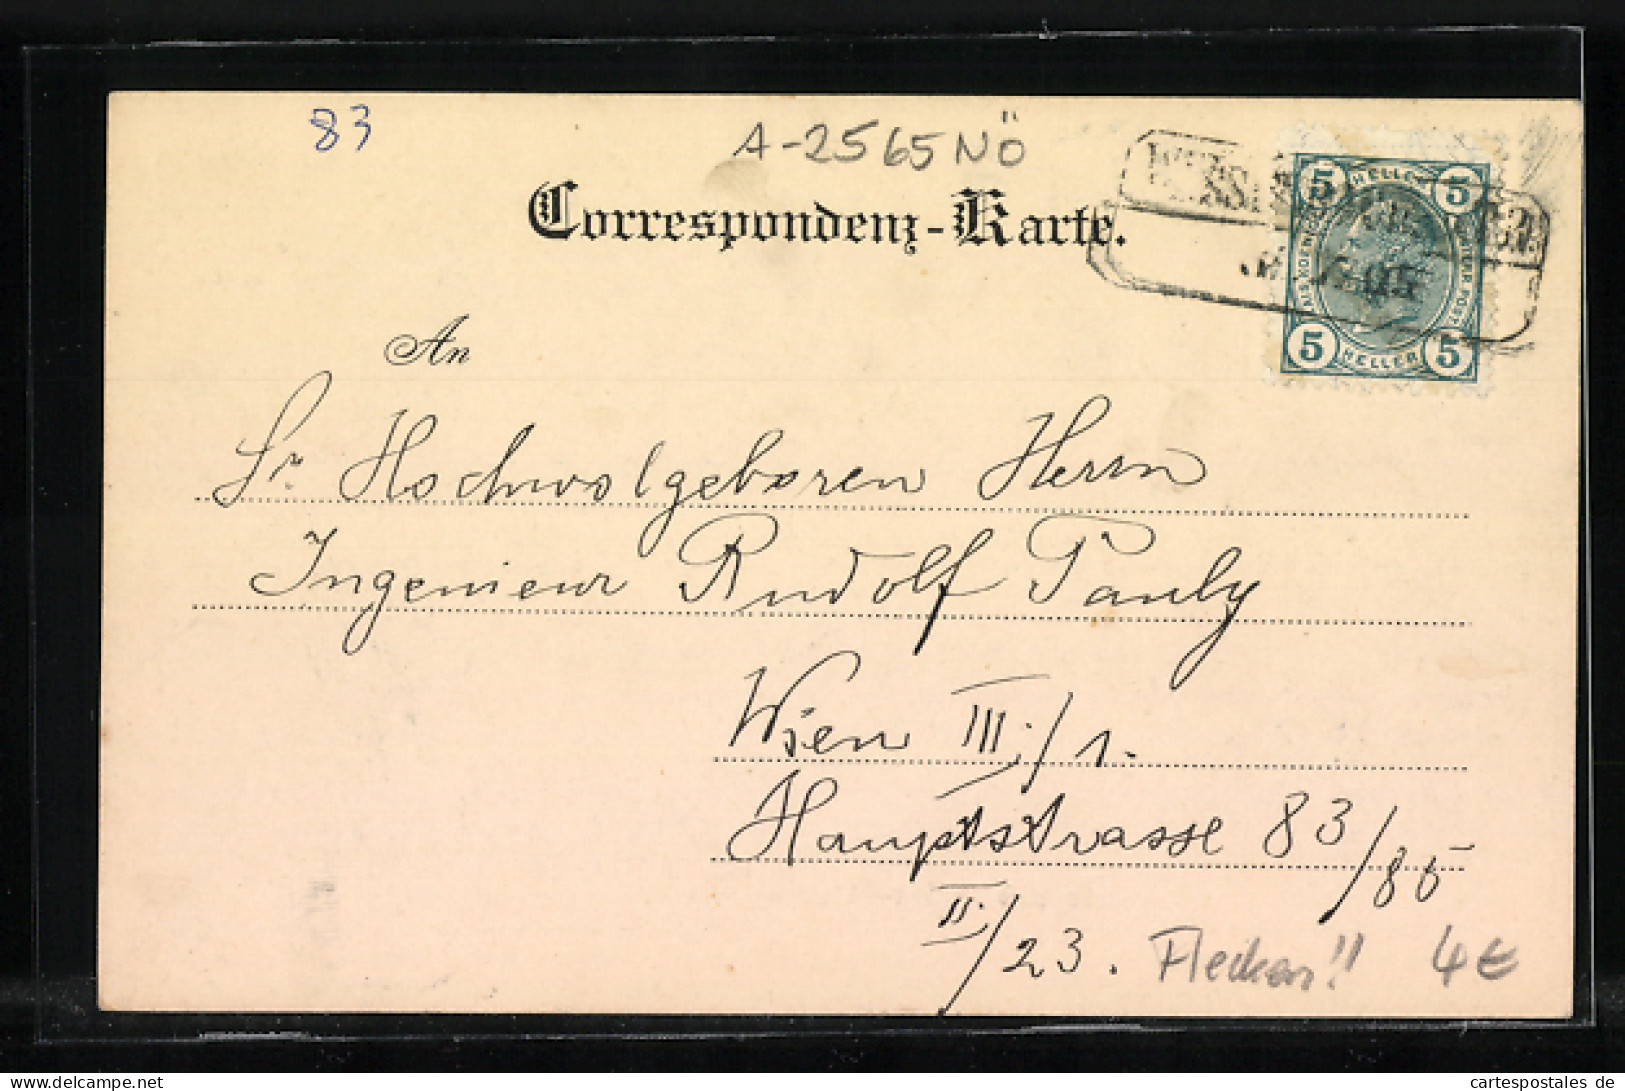 83
A-2565 NÖ
Correspondenz-Karte.
5 HELLER 5
5 HELLER 5
An
Sr. Hochwolgeboren Herrn
Ingenieur Rudolf Pauly
Wien III./1.
Hauptstrasse 83/85
II./23.
Flecken!! 4€
cartespostales de